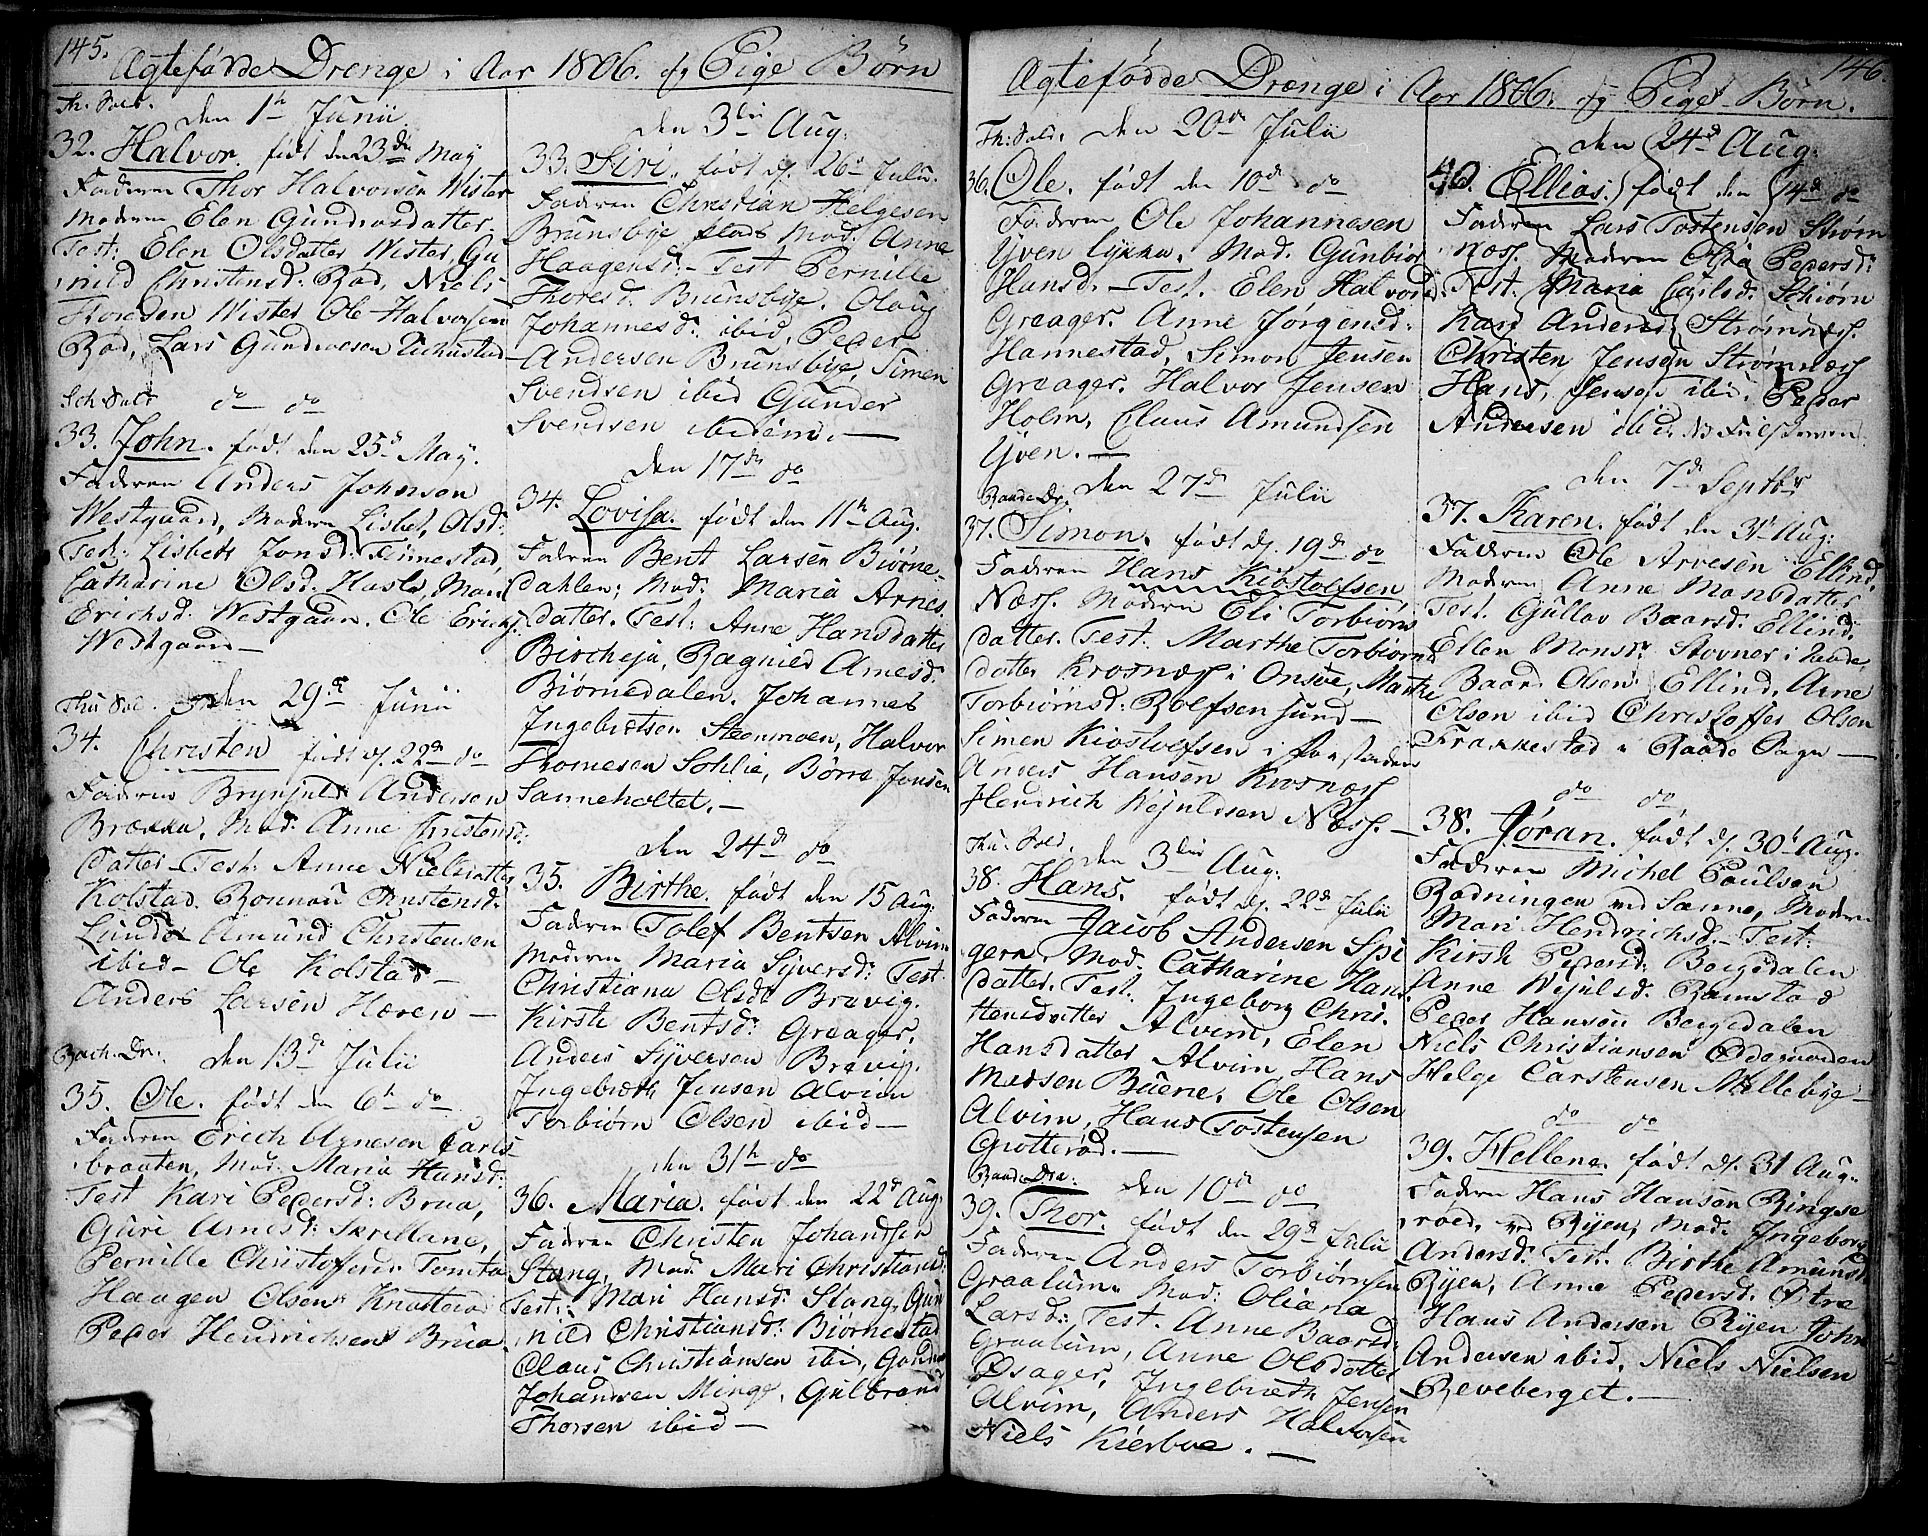 145.
Ægtefødde Drenge i Aar 1806. og Pige Børn
Th: Sold.
den 1te Junii
32. Halvor. født den 23de May
Faderen Thor Halvorsen Wister
Moderen Elen Gundersdatter
Test: Elen Olsdatter Wister, Gu
nild Christensd: Rød, Niels
Thoresen Wister Ole Halvorsen
Rød, Lars Gundersen
Sch: Sold do do
33. John. født den 25de May.
Faderen Anders Johnsen
Westgaard, Moderen Lisbet, Olsd:
Test: Lisbeth Jonsd: Timestad,
Catharine Olsd: Hasle, Mari
Erichsd: Westgaard. Ole Erichs:
Westgaard—
Thu: Sol. den 29de Junii
34. Christen født d. 22de do
Faderen Brynjuld Andersen
Brække, Mod: Anne Christens
datter—Test: Anne Nielsdatter
Kolstad. Ronnou Christensd:
Lunde Amund Christensen
ibid— Ole Kolstad—
Anders Larsen Haren—
Rach. Dr. den 13de Julii
35. Ole. født den 6te do
Faderen Erich Arnesen Carls
braaten, Mod: Maria Hansd:
Test Kari Pedersd: Brua,
Guri Arnesd: Skrellane,
Pernille Christofersd: Tomta
Haagen Olsen Knatterød
Peder Hendrichsen Brua.
den 3die Aug:
33. Siri. født d. 26de Julii.
Faderen Christian Helgesen
Brunsbye flode Mod: Anne
Haagensd:—Test Pernille
Thoresd: Brunsbye. Olaug
Johannesd: ibid, Peder
Andersen Brunsbye, Simen
Svendsen ibid Gunder
Svendsen ibidem.—
den 17de do
34. Lovisa. født den 11te Aug.
Faderen Bent Larsen Biørne
dahlen; Mod: Maria Arnes
datter. Test: Anne Hansdatter
Bircheja, Ragnild Arnesd:
Biørnedalen, Johannes
Ingebretsen Steenmoen, Halvor
Thomesen Sohlie, Børre Jensen
Sanneholtet.—
den 24de do
35. Birthe. født den 15 Aug.
Faderen Tolef Bentsen Alvim
Moderen Maria Syversd: Test:
Christiana Olsd: Brevig.
Kirsti Bentsd: Greager,
Anders Syversen Brevig.
Ingebreth Jensen Alvim
Torbiørn Olsen ibid—
den 31te do
36. Maria. født den 22de Aug:
Faderen Christen Johansen
Stang, Mod: Mari Christiansd:
Test: Mari Hansd: Stang, Gun
nild Christiansd: Biørnestad
Claus Christiansen ibid, Gunder
Johannesen Minge, Gulbrand
Thorsen ibid—
146
Ægtefødde Drenge i Aar 1806. og Pige Børn.
Th: Sold. den 20de Julii
36. Ole. født den 10de do
Faderen Ole Johannesen
Yven Lykka. Mod. Gunbior
Hansd.—Test. Elen Halvorsd:
Greager. Anne Jørgensd:
Hannestad, Simon Jensen
Greager. Halvor Jensen
Holm, Claus Amundsen
Yven.—
Raade Dr: den 27de Julii
37. Simon. født d. 19de do
Faderen Hans Kiostolfsen
Næss. Moderen Eli Torbiørns
datter. Test. Marthe Torbiørns
datter Krosnæss i Onsøe, Marthe
Torbiørnsd: Rolfsensund—
Simen Kiostolfsen i
Anders Hansen Krosnæss
Hendrich Wejulssen Næss.—
Thu: Sold. den 3die Aug:
38. Hans. født d. 22de Julii
Faderen Jacob Andersen Spi
geren. Mod: Catharine Hans
datter. Test. Ingeborg Chris
tensdatter Alvim, Elen
Hansdatter Alvim, Hans
Madsen Buene, Ole Olsen
Alvim, Hans Tostensen
Grotterød.—
Raade Dra: den 10de do
39. Thor. født den 29de Julii
Faderen Anders Torbiørnsen
Graalum. Mod: Oliana
Larsd: Test. Anne Baarsd:
Graalum, Anne Olsdatter
Opsager, Ingebreth Jensen
Alvim, Anders Halvorsen
Niels Kierboe.—
den 24de Aug:
40. Ellias. født den 14de do
Faderen Lars Tostensen Strøm
næss. Moderen Olia Pedersd:
Test: Maria Carlsd: Schiørn
Kari Andersd: Strømnæss.
Christen Jensen Strømnæss
Hans Jensen ibid. Peder
Andersen ibid.
den 7de Septbr
37. Karen. født den 31te Aug:
Faderen Ole Arvesen Ellind
Moderen Anne Monsdatter
Test. Gullov Baarsd: Ellind,
Ellen Monsd: Stovner i Raade,
Baard Olsen Ellind, Arne
Olsen ibid Christoffer Olsen
Frankestad i Raade Sogn—
do do
38. Jøran. født d. 30te Aug.
Faderen Michel Poulsen
Rødningen ved Sanne, Moderen
Mari Hendrichsd:—Test:
Kirsti Pedersd: Bergedalen
Anne Wejulsd. Ramstad
Peder Hansen Bergedalen
Niels Christiansen Ødemarken
Helge Carstensen Millebye—
do do
39. Hellene. født d. 31 Aug.
Faderen Hans Hansen Ringse
røed, ved Ryen, Mod: Ingeborg
Andersd: Test. Birthe Amundsd:
Ryen, Anne Pedersd: Østre
Hans Andersen Ryen John
Andersen ibid, Niels Nielsen
Reveberget.—